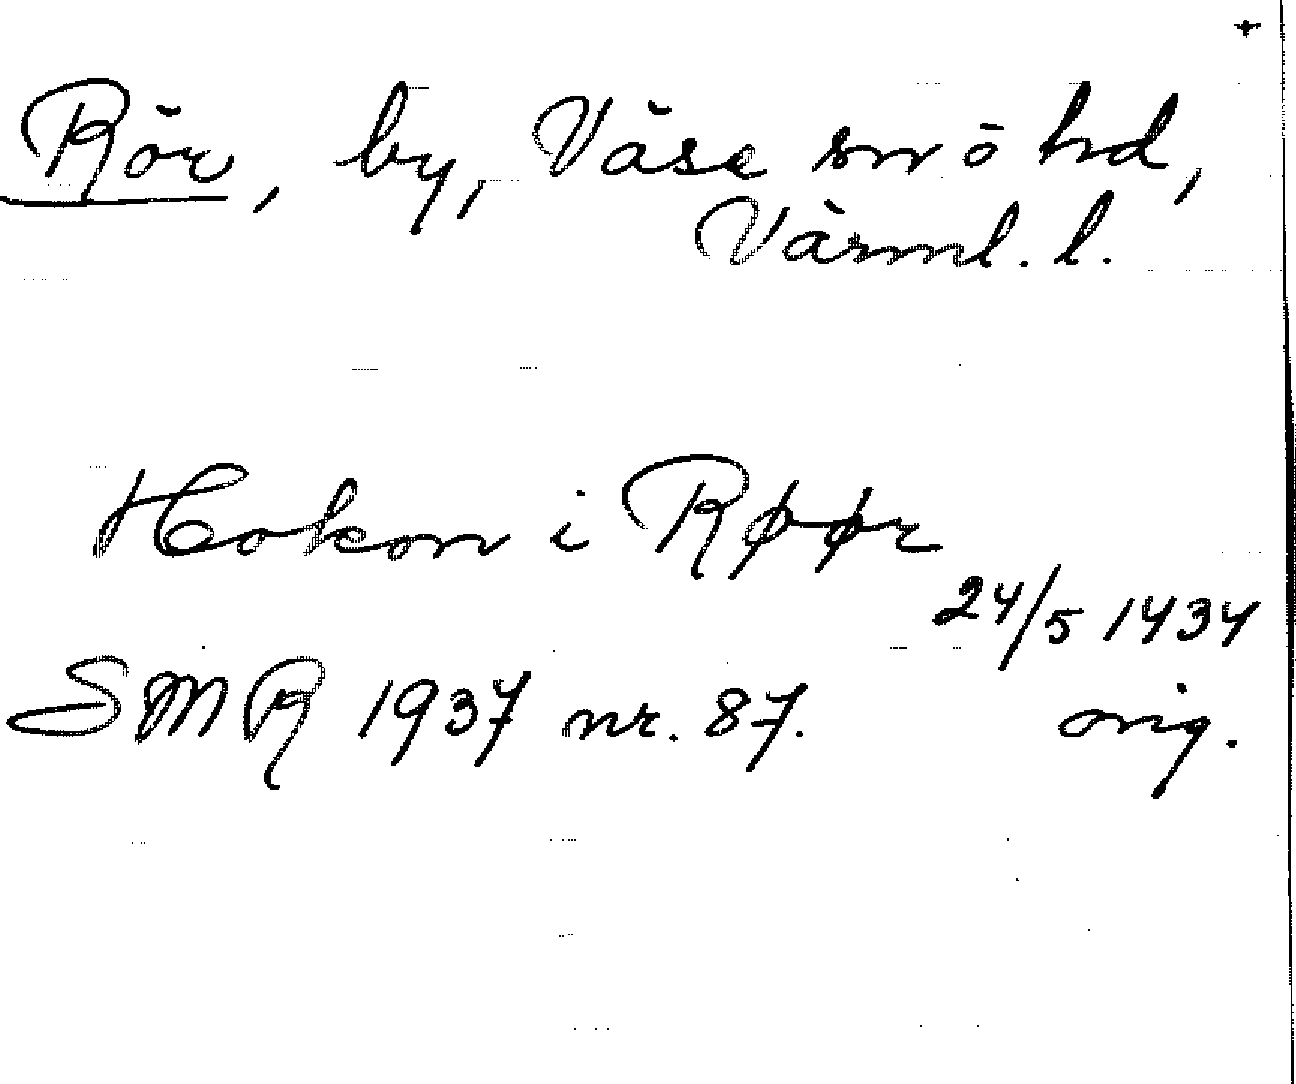 +
Rör, by, Väse sn o hd,
Värml. l.
Hokon i Røør
24/5 1434
SMR 1937 nr. 87. orig.